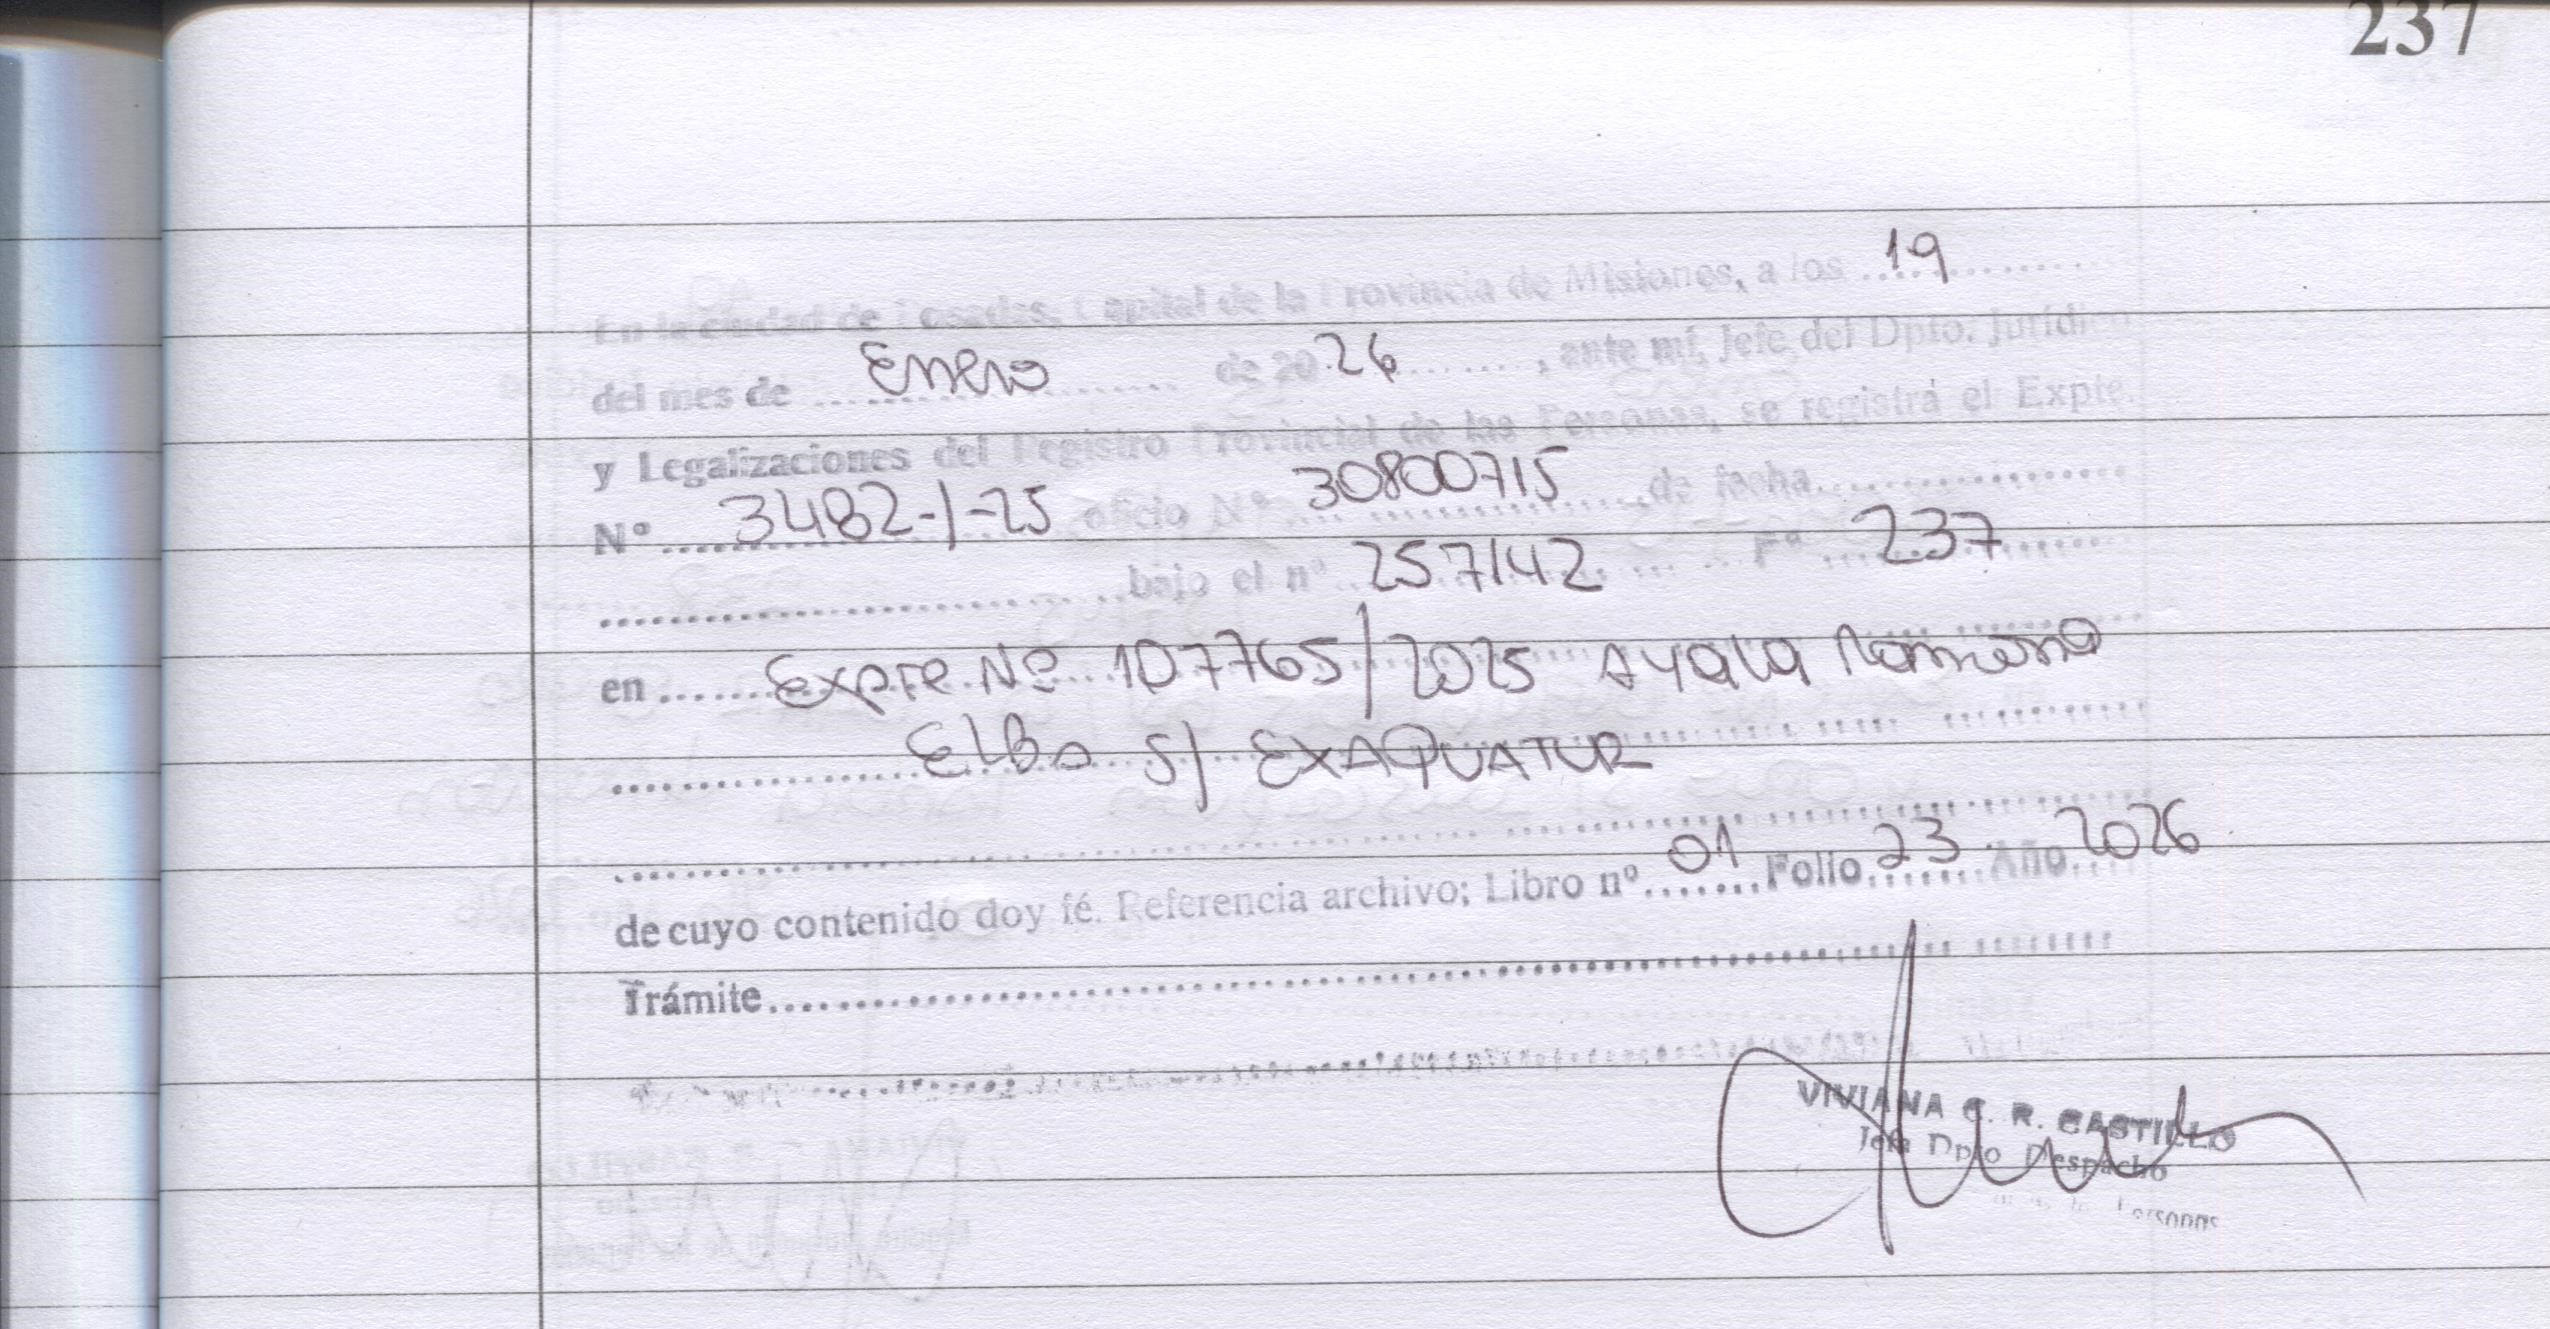 237
En la ciudad de Posadas, Capital de la Provincia de Misiones, a los 19
del mes de Enero de 20 26, ante mí, Jefe del Dpto. Jurídico
y Legalizaciones del Registro Provincial de las Personas, se registrá el Expte.
Nº 3482-1-25 oficio Nº 30800715 de fecha
bajo el nº 257142 Fº 237
en Expte. Nº 107765/2025 Ayala
Elba S/ EXAQUATUR
de cuyo contenido doy fé. Referencia archivo; Libro nº 01 Folio 23 Año 2026
Trámite
VIVIANA C. R. CASTILLO
Jefa Dpto Despacho
Personas